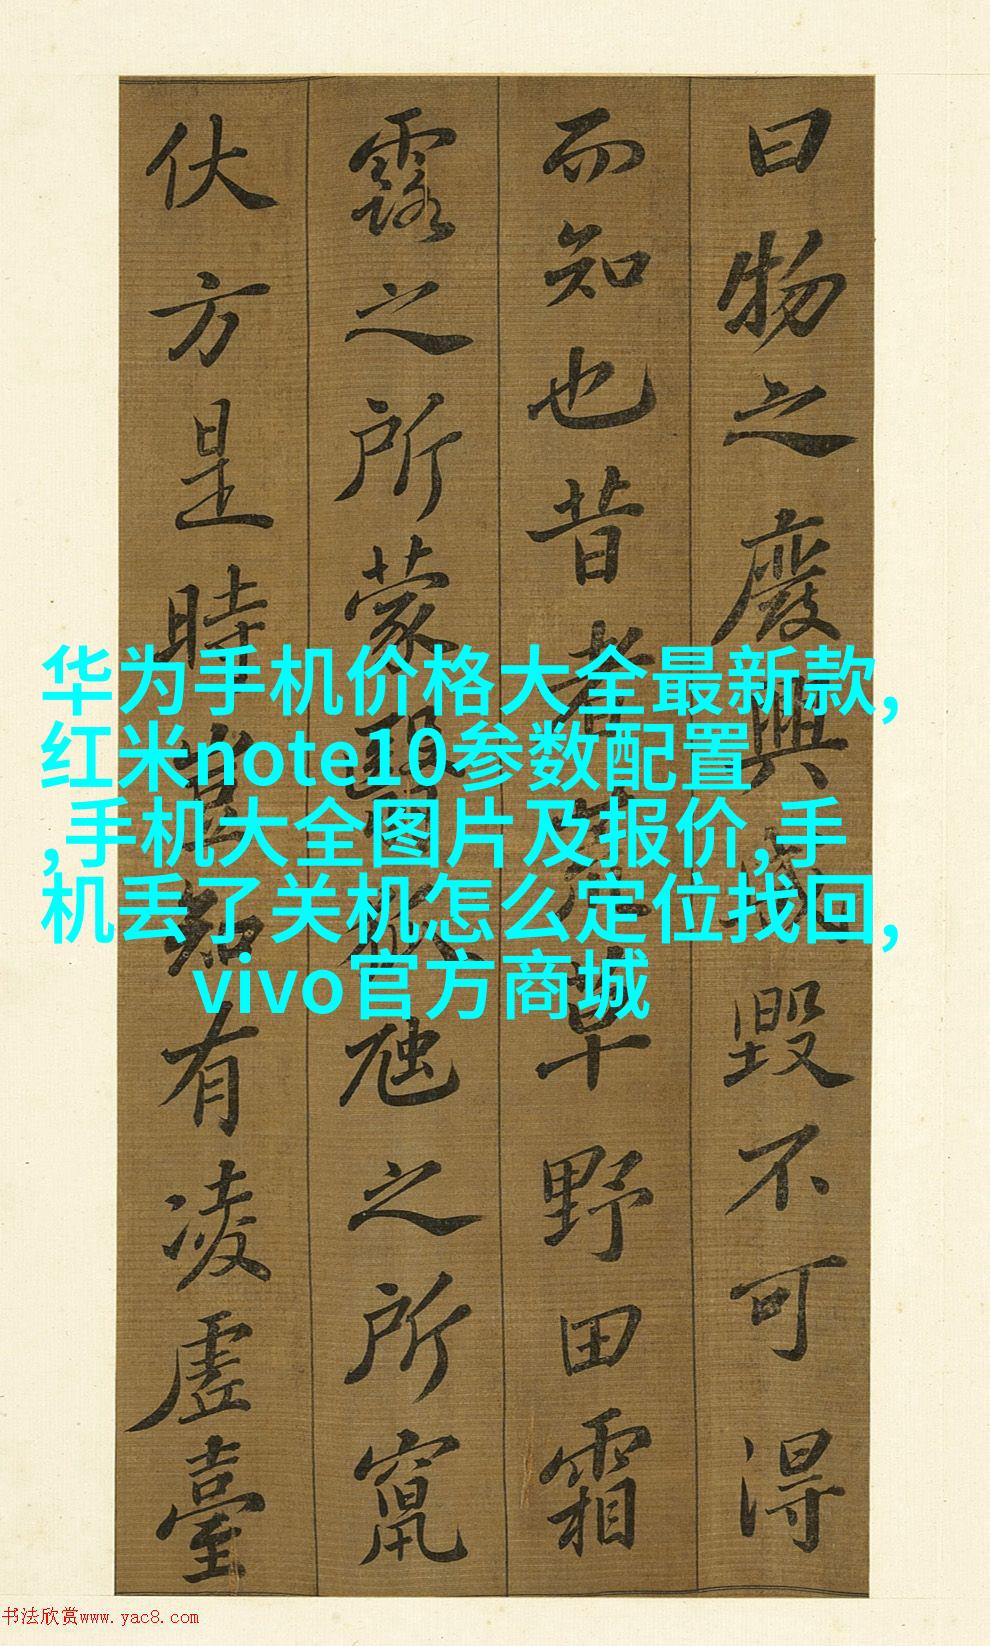 曰物之廢興成毀不可得
而知也昔者荒草野田霜
露之所蒙翳狐虺之所竄
伏方是時豈知有凌虛臺
华为手机价格大全最新款,
红米note10参数配置
,手机大全图片及报价,手
机丢了关机怎么定位找回,
vivo官方商城
书法欣赏www.yac8.com